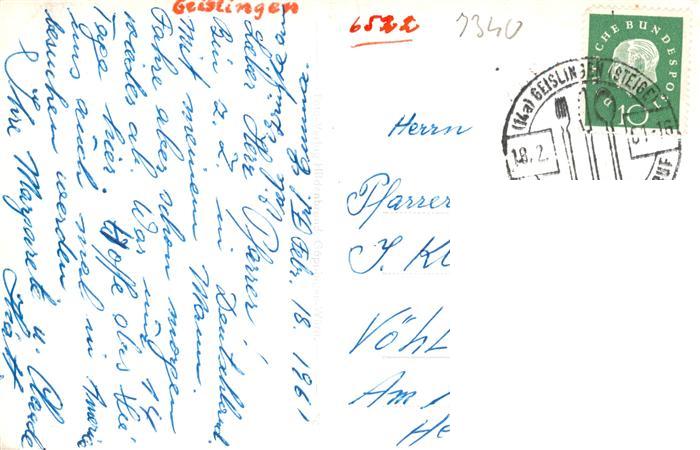 Geislingen
6522
7340
Febr. 18. 1961
Lieber Herr Pfarrer!
Bin z. Z. in Deutschland
Mit meinem Mann.
Fahre aber schon morgen
wieder ab. War nur 14
Tage hier. Hoffe dass Sie
uns auch mal in Amerika
besuchen werden
Ihre Margaret u.
CHE BUNDESPOS
10
(14a) GEISLINGEN (STEIGE)
18.2.
Herrn
Pfarrer
J. Kl
Vöhl
Am
He